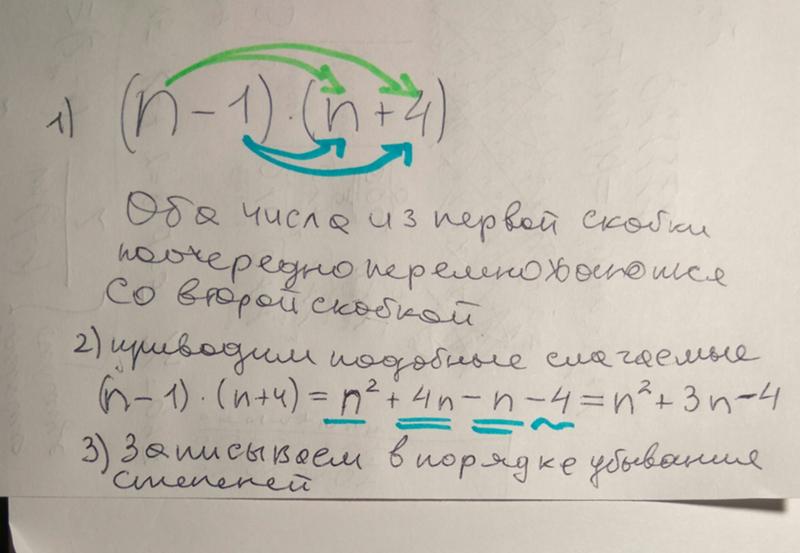 1) (n-1)·(n+4)
Оба числа из первой скобки
поочередно перемножаются
со второй скобкой
2) приводим подобные слагаемые
(n-1)·(n+4)=n²+4n-n-4=n²+3n-4
3) Записываем в порядке убывания
степеней